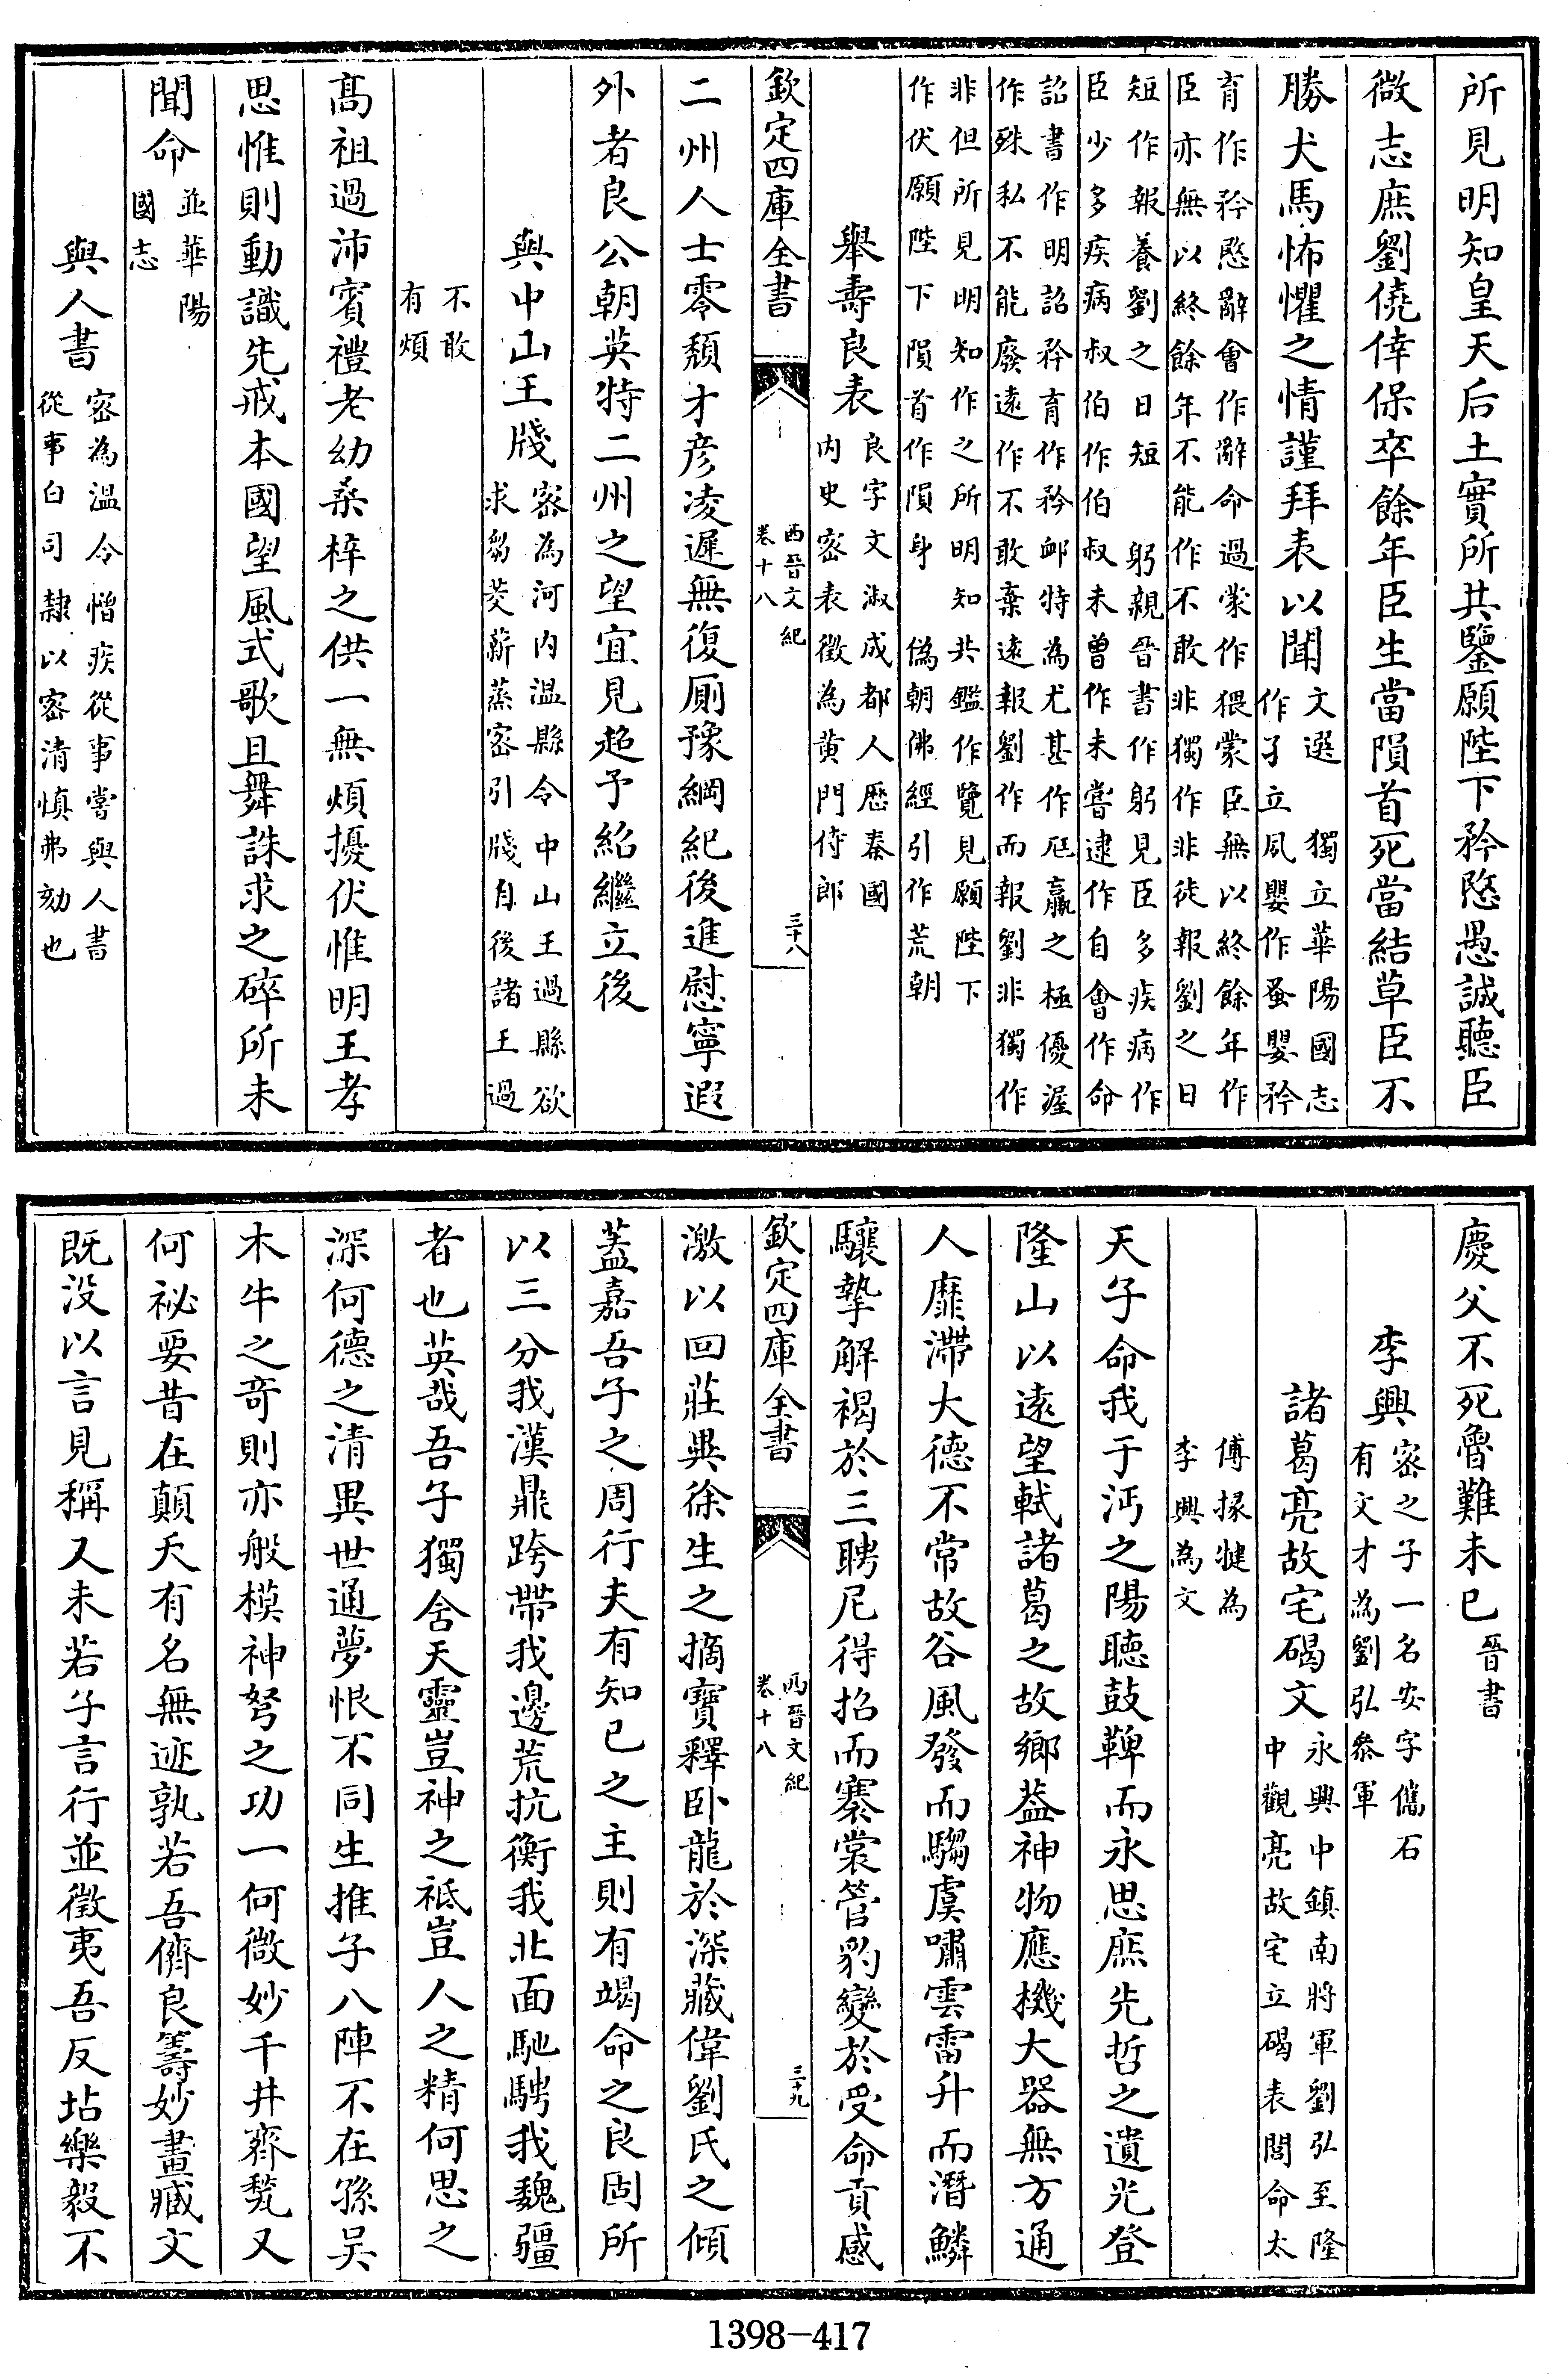 所見明知皇天后土實所共鑒願陛下矜愍愚誠聽臣
微志庶劉僥倖保卒餘年臣生當隕首死當結草臣不
勝犬馬怖懼之情謹拜表以聞文選 獨立華陽國志
作孑立夙嬰作蚤嬰矜
育作矜愍辭會作辭命過蒙作猥蒙臣無以終餘年作
臣亦無以終餘年不能作不敢非獨作非徒報劉之日
短作報養劉之日短 躬親晉書作躬見臣多疾病作
臣少多疾病叔伯作伯叔未曾作未嘗逮作自會作命
詔書作明詔矜育作矜卹特為尤甚作尫羸之極優渥
作殊私不能廢遠作不敢棄遠報劉作而報劉非獨作
非但所見明知作之所明知共鑑作覽見願陛下
作伏願陛下隕首作隕身 偽朝佛經引作荒朝
舉壽良表良字文淑成都人歷秦國
內史密表徵為黃門侍郎
欽定四庫全書
西晉文紀
卷十八
三十八
二州人士零頹才彥凌遲無復厠豫綱紀後進慰寧遐
外者良公朝英特二州之望宜見超予紹繼立後
與中山王牋密為河内温縣令中山王過縣欲
求芻茭薪蒸密引牋自後諸王過
不敢
有煩
髙祖過沛賓禮老幼桑梓之供一無煩擾伏惟明王孝
思惟則動識先戒本國望風式歌且舞誅求之碎所未
聞命並華陽
國志
與人書密為温令憎疾從事嘗與人書
從事白司隸以密清慎弗劾也
慶父不死魯難未已晉書
李興密之子一名安字儁石
有文才為劉弘叅軍
諸葛亮故宅碣文永興中鎮南將軍劉弘至隆
中觀亮故宅立碣表閭命太
傅掾犍為
李興為文
天子命我于沔之陽聽鼓鞞而永思庶先哲之遺光登
隆山以遠望軾諸葛之故鄉葢神物應機大器無方通
人靡滯大德不常故谷風發而騶虞嘯雲雷升而潛鱗
驤摯解褐於三聘尼得招而褰裳管豹變於受命貢感
欽定四庫全書
西晉文紀
卷十八
三十九
激以回莊異徐生之摘寳釋卧龍於深藏偉劉氏之傾
蓋嘉吾子之周行夫有知已之主則有竭命之良固所
以三分我漢鼎跨帶我邊荒抗衡我北面馳騁我魏疆
者也英哉吾子獨含天靈豈神之祗豈人之精何思之
深何德之清異世通夢恨不同生推子八陣不在孫吳
木牛之竒則亦般模神弩之功一何微妙千井齊甃又
何祕要昔在顛夭有名無迹孰若吾儕良籌妙畫臧文
既没以言見稱又未若子言行並徵夷吾反坫樂毅不
1398-417